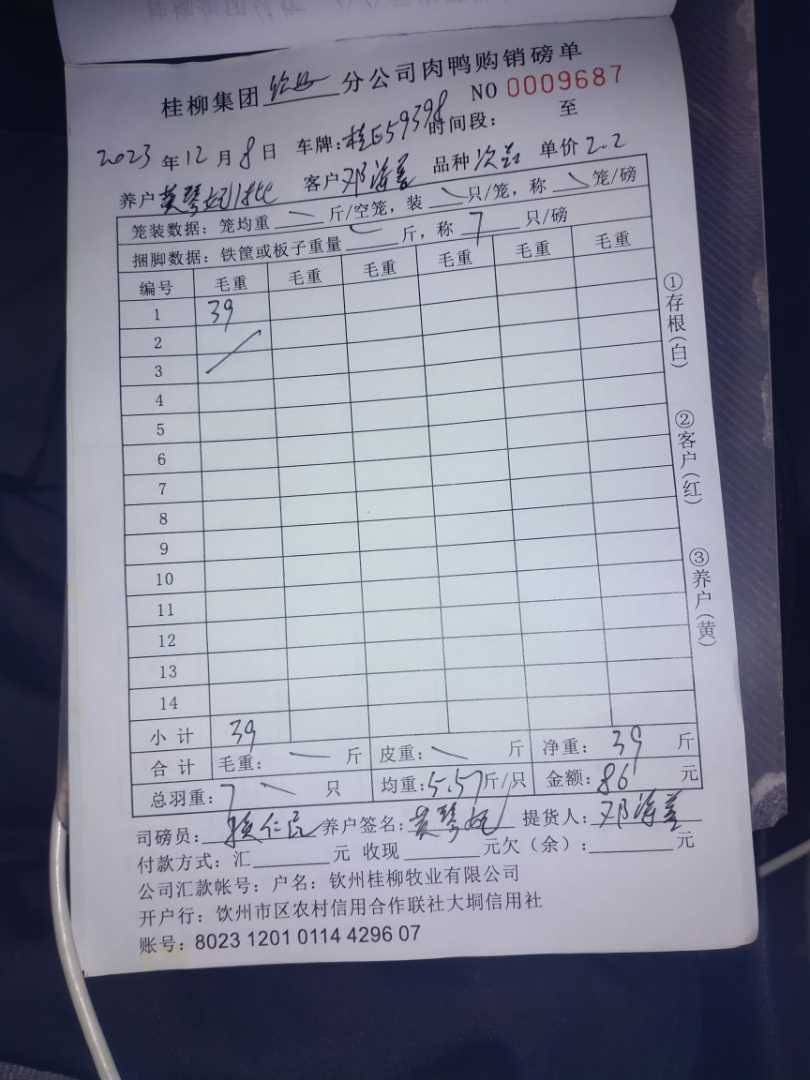 桂柳集团 钦州 分公司肉鸭购销磅单
NO 0009687
2023 年 12 月 8 日 车牌：桂E59398 时间段： 至
养户 黄琴 批 客户 邓海 品种 次 单价 2.2
笼装数据：笼均重 斤/空笼，装 只/笼，称 笼/磅
捆脚数据：铁筐或板子重量 斤，称 7 只/磅
编号 毛重 毛重 毛重 毛重 毛重 毛重
1 39
2
3
4
5
6
7
8
9
10
11
12
13
14
小 计 39
合 计 毛重： 斤 皮重： 斤 净重： 39 斤
总羽重： 7 只 均重：5.57斤/只 金额：86 元
司磅员： 仁 养户签名：黄琴 提货人：邓海
付款方式：汇 元 收现 元欠（余）： 元
公司汇款帐号：户名：钦州桂柳牧业有限公司
开户行：钦州市区农村信用合作联社大垌信用社
账号：8023 1201 0114 4296 07
①存根（白）
②客户（红）
③养户（黄）